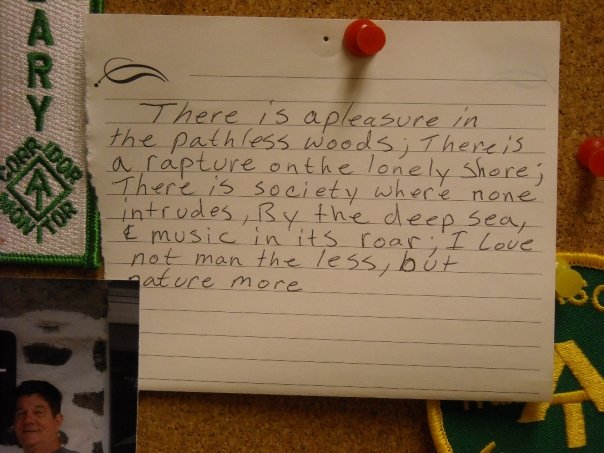 There is a pleasure in
the pathless woods; There is
a rapture on the lonely shore;
There is society where none
intrudes, By the deep sea,
& music in its roar; I love
not man the less, but
nature more
ARY
CORRIDOR
AT
MONITOR